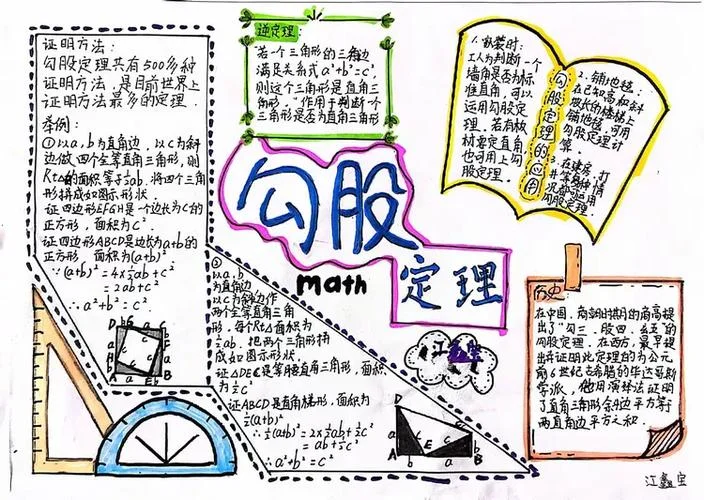 证明方法:
勾股定理共有500多种
证明方法,是目前世界上
证明方法最多的定理.
举例:
①以a,b为直角边,以c为斜
边做四个全等直角三角形,则
Rt△的面积等于½ab.将四个三角
形拼成如图示形状
证四边形EFGH是一个边长为c的
正方形,面积为c²
证四边形ABCD是边长为a+b的
正方形,面积为(a+b)²
∴(a+b)²=4×½ab+c²
=2ab+c²
∴a²+b²=c²
D
A
E
B
②
以a,b
为直角边
以c为斜边作
两个全等直角三角
形,每个Rt△面积为
½ab.把两个三角形拼
成如图示形状.
证△DEC是等腰直角三角形,面积
为½c²
证ABCD是直角梯形,面积为
½(a+b)²
∴½(a+b)²=2×½ab+½c²
=ab+½c²
∴a²+b²=c²
D
C
A
b
E
a
B
逆定理:
若一个三角形的三条边
满足关系式a²+b²=c²,
则这个三角形是直角三
角形.作用于判断一个
三角形是否为直角三角形
勾股
定理
math
勾股定理的应用
1.安装时:
工人为判断一个
墙角是否为标
准直角,可以
运用勾股定
理.若有板
材要定直角
也可用上勾
股定理.
2.铺地毯:
在已知高和斜
坡长的楼梯上
铺地毯,可用
勾股定理计
算.
3.在建房,打
井等各种情
况都可运用
勾股定理.
历史:
在中国,商朝时期的商高提
出了"勾三、股四、玄五"的
勾股定理.在西方,最早提
出并证明此定理的为公元
前6世纪古希腊的毕达哥斯
学派,他用演绎法证明
了直角三角形斜边平方等于
两直角边平方之和.